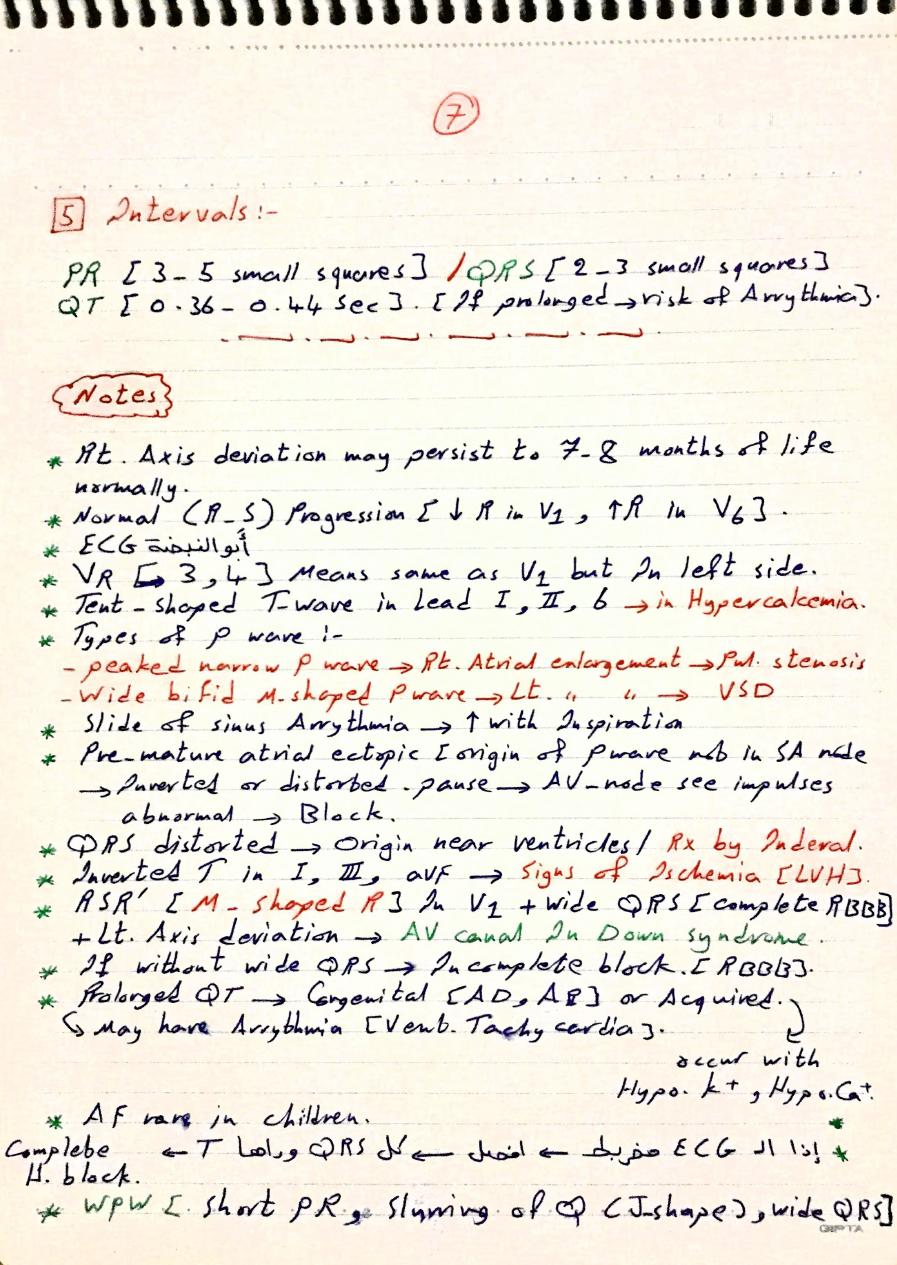 7
5 Intervals :-
PR [ 3 - 5 small squares ] / QRS [ 2 - 3 small squares ]
QT [ 0.36 - 0.44 sec ] . [ If prolonged → risk of Arrythmia ] .
Notes
* Rt. Axis deviation may persist to 7-8 months of life
normally.
* Normal (R_S) Progression [ ↓ R in V1 , ↑R in V6 ] .
* ECG أبو النبضة
* VR [→ 3,4 ] Means same as V1 but In left side.
* Tent-shaped T-wave in lead I, II, 6 → in Hypercalcemia.
* Types of P wave :-
- peaked narrow P wave → Rt. Atrial enlargement → Pul. stenosis
- Wide bifid M-shaped P wave → Lt. " " → VSD
* Slide of sinus Arrythmia → ↑ with Inspiration
* Pre-mature atrial ectopic [ origin of P wave not in SA node
→ Inverted or distorbed . pause → AV-node see impulses
abnormal → Block.
* QRS distorted → Origin near ventricles / Rx by Inderal.
* Inverted T in I, III, aVF → Signs of Ischemia [LVH].
* RSR' [ M-shaped R ] In V1 + wide QRS [ complete RBBB]
+ Lt. Axis deviation → AV canal In Down syndrome.
* If without wide QRS → Incomplete block. [ RBBB].
* Prolonged QT → Congenital [AD, AR] or Acquired.
↳ May have Arrythmia [Vent. Tachycardia].
occur with
Hypo. K+ , Hypo. Ca+.
* AF rare in children.
* إذا الـ ECG مخربط ← افصل ← كل QRS وراها T ← Complete
H. block.
* WPW [ short PR, Slurring of Q (J-shape), wide QRS]
GIPTA